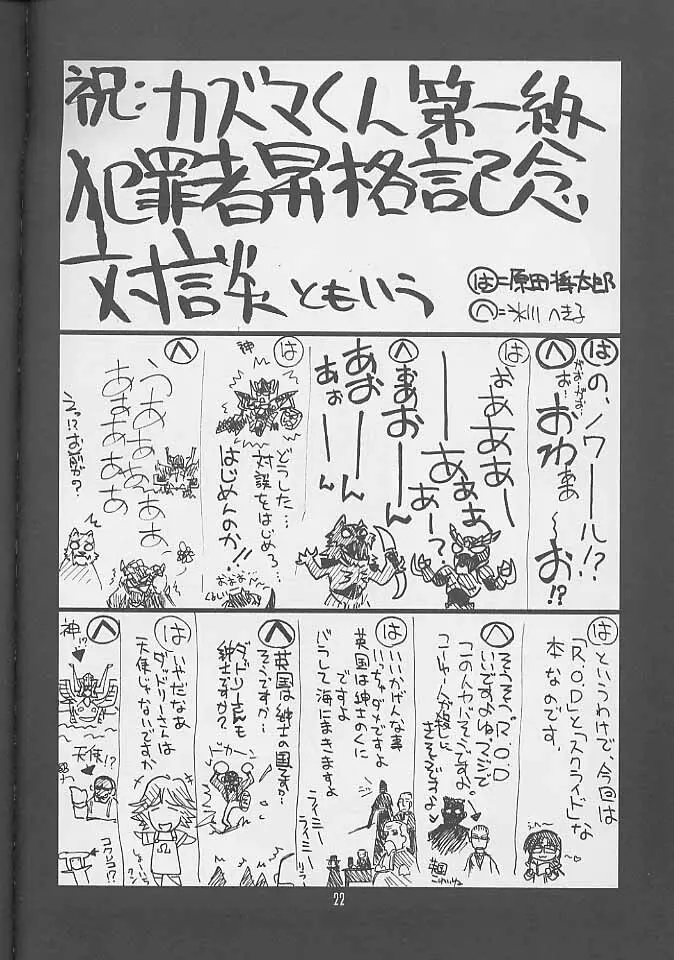 祝:カズマくん第一級
犯罪者昇格記念
対談ともいう
は=原田将太郎
へ=氷川へきる
は
の、ノワール!?
へ
がお…がお…
お…
おわぁあ〜お!?
は
おああああー
ーあぁぁあぁー?
へ
おぁあおーーん
あおーーん
あぉーーん
は
神
どうした…
対談をはじめろ…
はじめんのか!!
おおお…
くるしい
へ
うあああぁぁあ
あぁあぁあぁぁ
えっ!?お前が?
は
というわけで、今回は
「R.O.D」と「スクライド」な
本なのです。
へ
そうそう。R.O.D
いいですよねマジで
この人ヤバそうですよ。
こーゆー人が殺し、
ぎそうですよ
は
いいかげんな事
いっちゃダメですよ
英国は紳士のくに
ですよ
バラして海にまきますよ
ライミー
ライミー
へ
英国は紳士の国ですか…
そうですか…
ダッドリーさんも
紳士ですか?
ドカーン
は
いやだなあ
ダッドリーさんは
天使じゃないですか
へ
神!?
天使!?
コワレコ!?
22